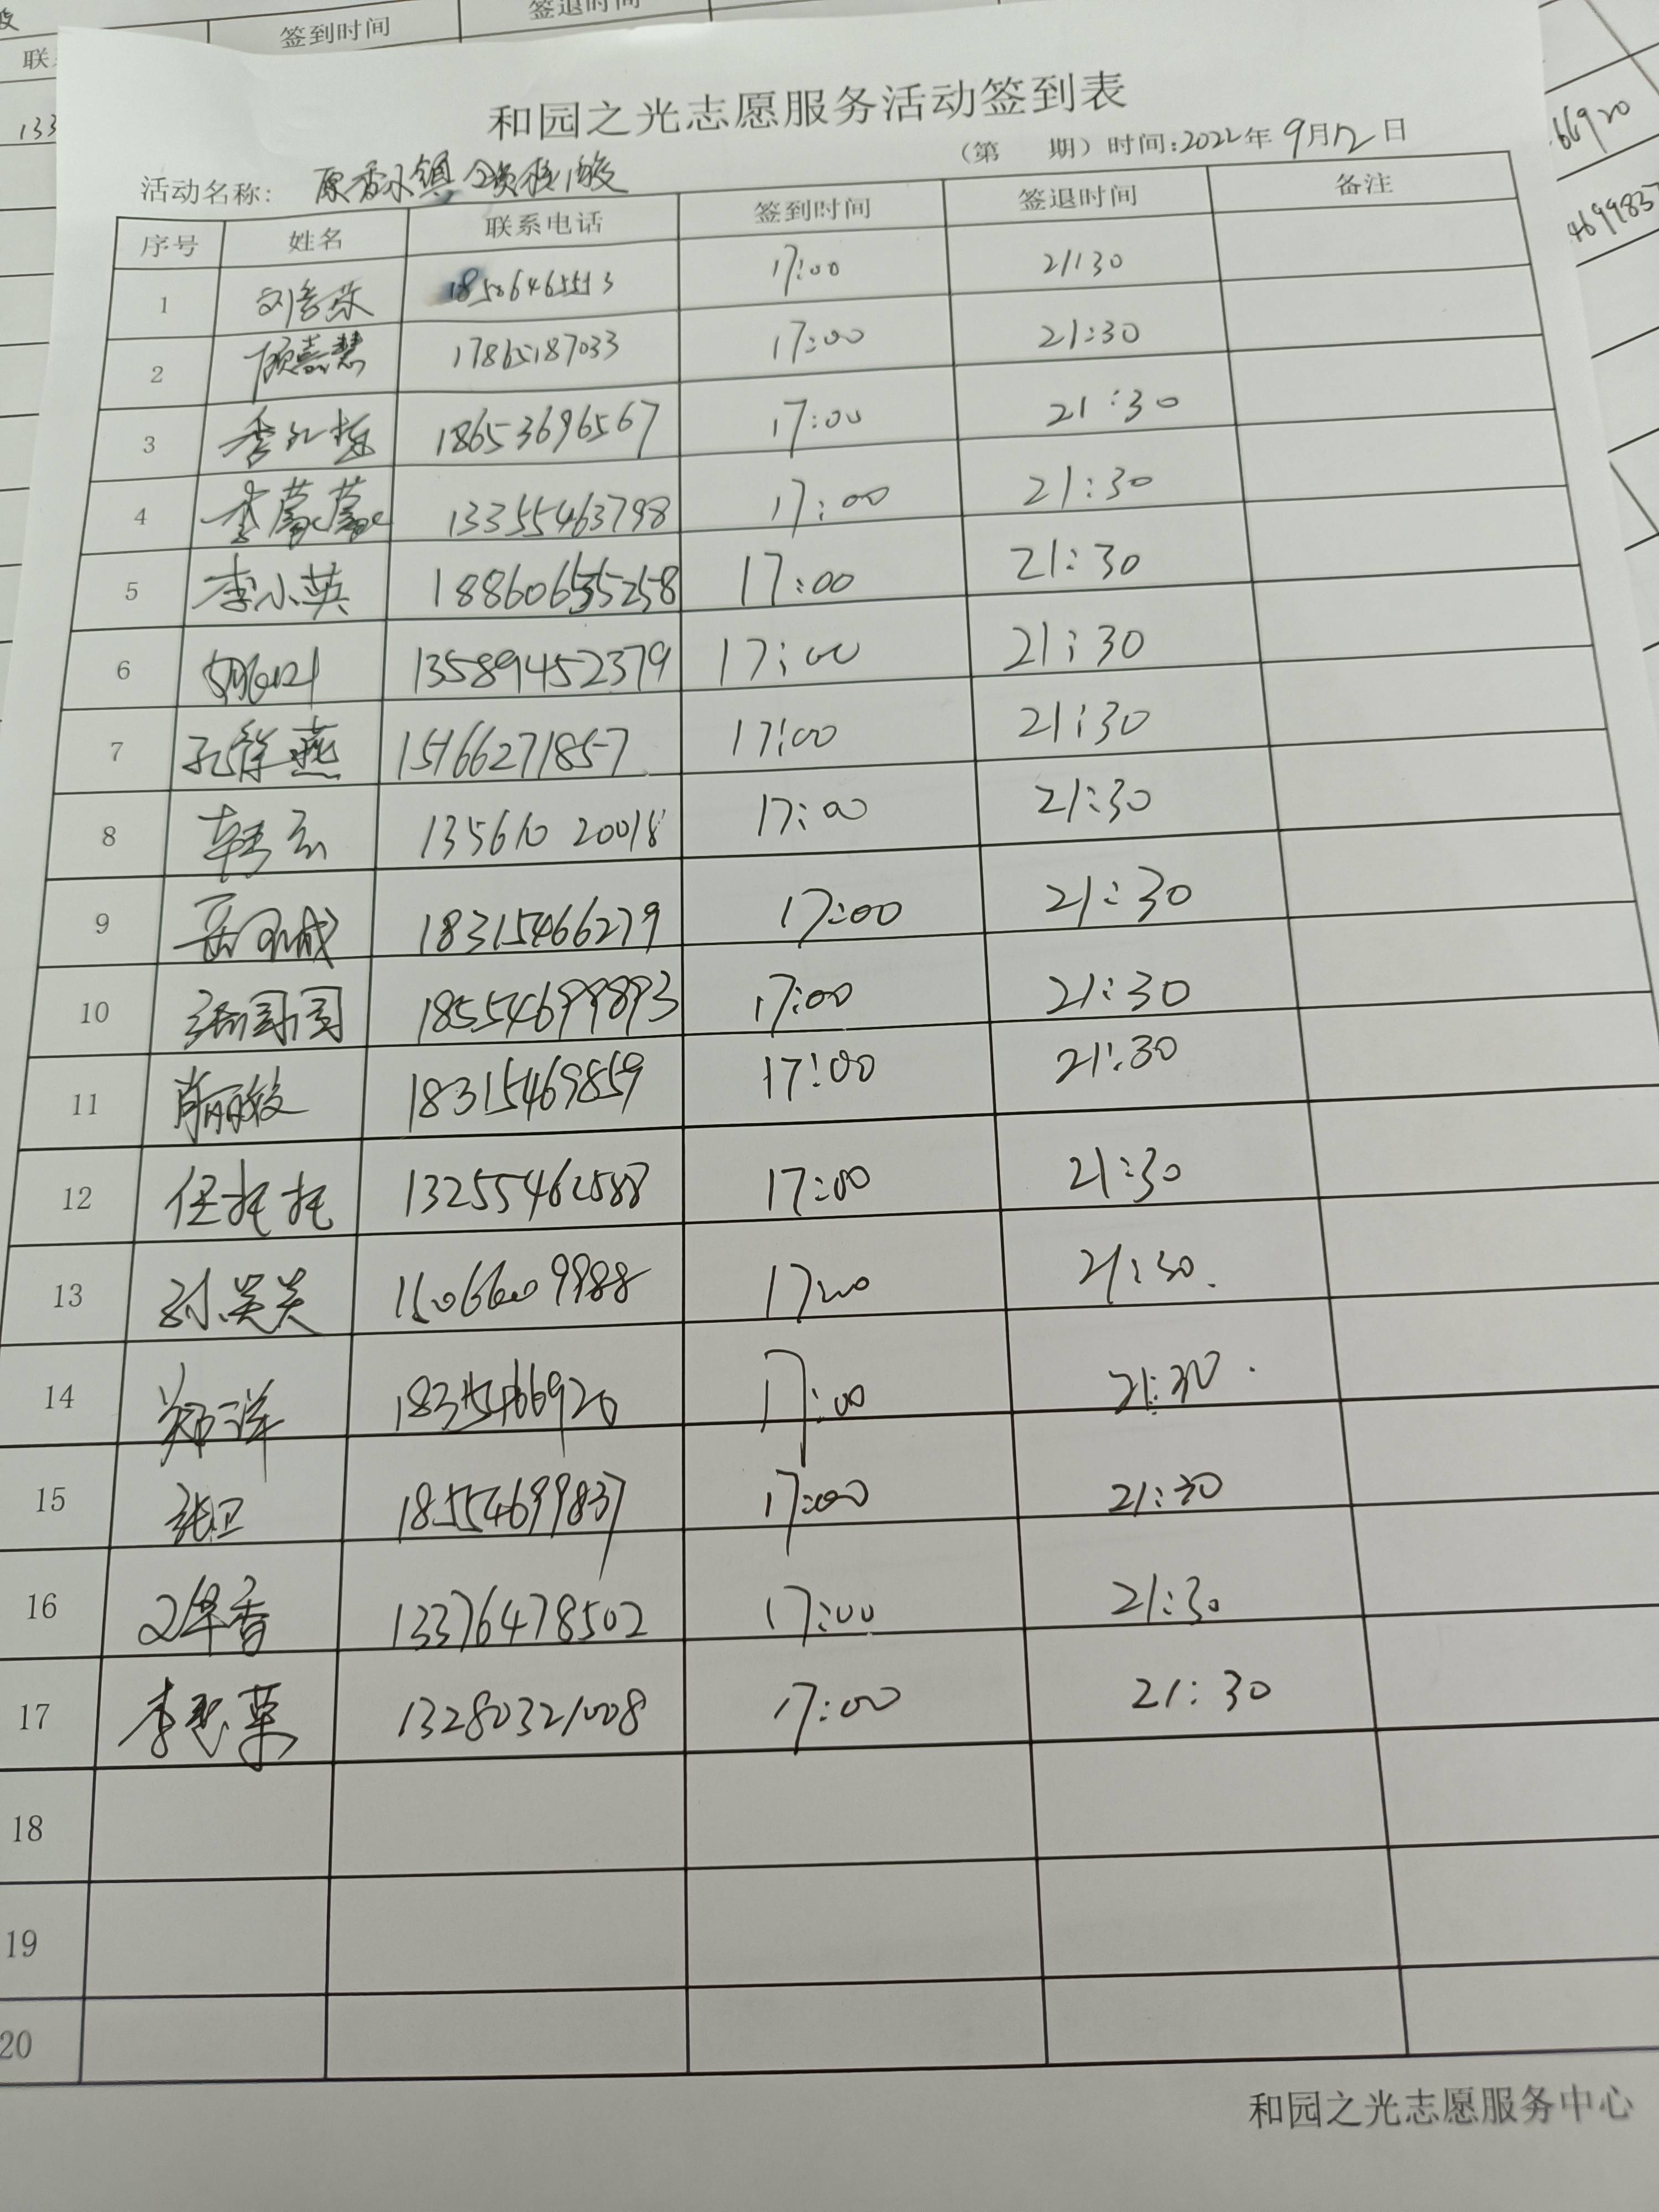 签到时间
签退时间
联系
133
和园之光志愿服务活动签到表
(第 期) 时间:2022年 9月12日
活动名称: 原香小镇全员核酸
序号 姓名 联系电话 签到时间 签退时间 备注
1 17:00 21:30
2 顾嘉慧 17865187033 17:00 21:30
3 18653696567 17:00 21:30
4 李蒙蒙 13355463798 17:00 21:30
5 李小英 17:00 21:30
6 13589452379 17:00 21:30
7 孔筱燕 15166271857 17:00 21:30
8 韩云 13561020018 17:00 21:30
9 18315466279 17:00 21:30
10 18554699893 17:00 21:30
11 肖丽姣 18315469859 17:00 21:30
12 任托托 13255462588 17:00 21:30
13 17:00 21:30.
14 郑洋 18315466920 17:00 21:30.
15 张卫 18554699837 17:00 21:30
16 13376478502 17:00 21:30
17 13280321008 17:00 21:30
18
19
20
和园之光志愿服务中心
66920
4699837